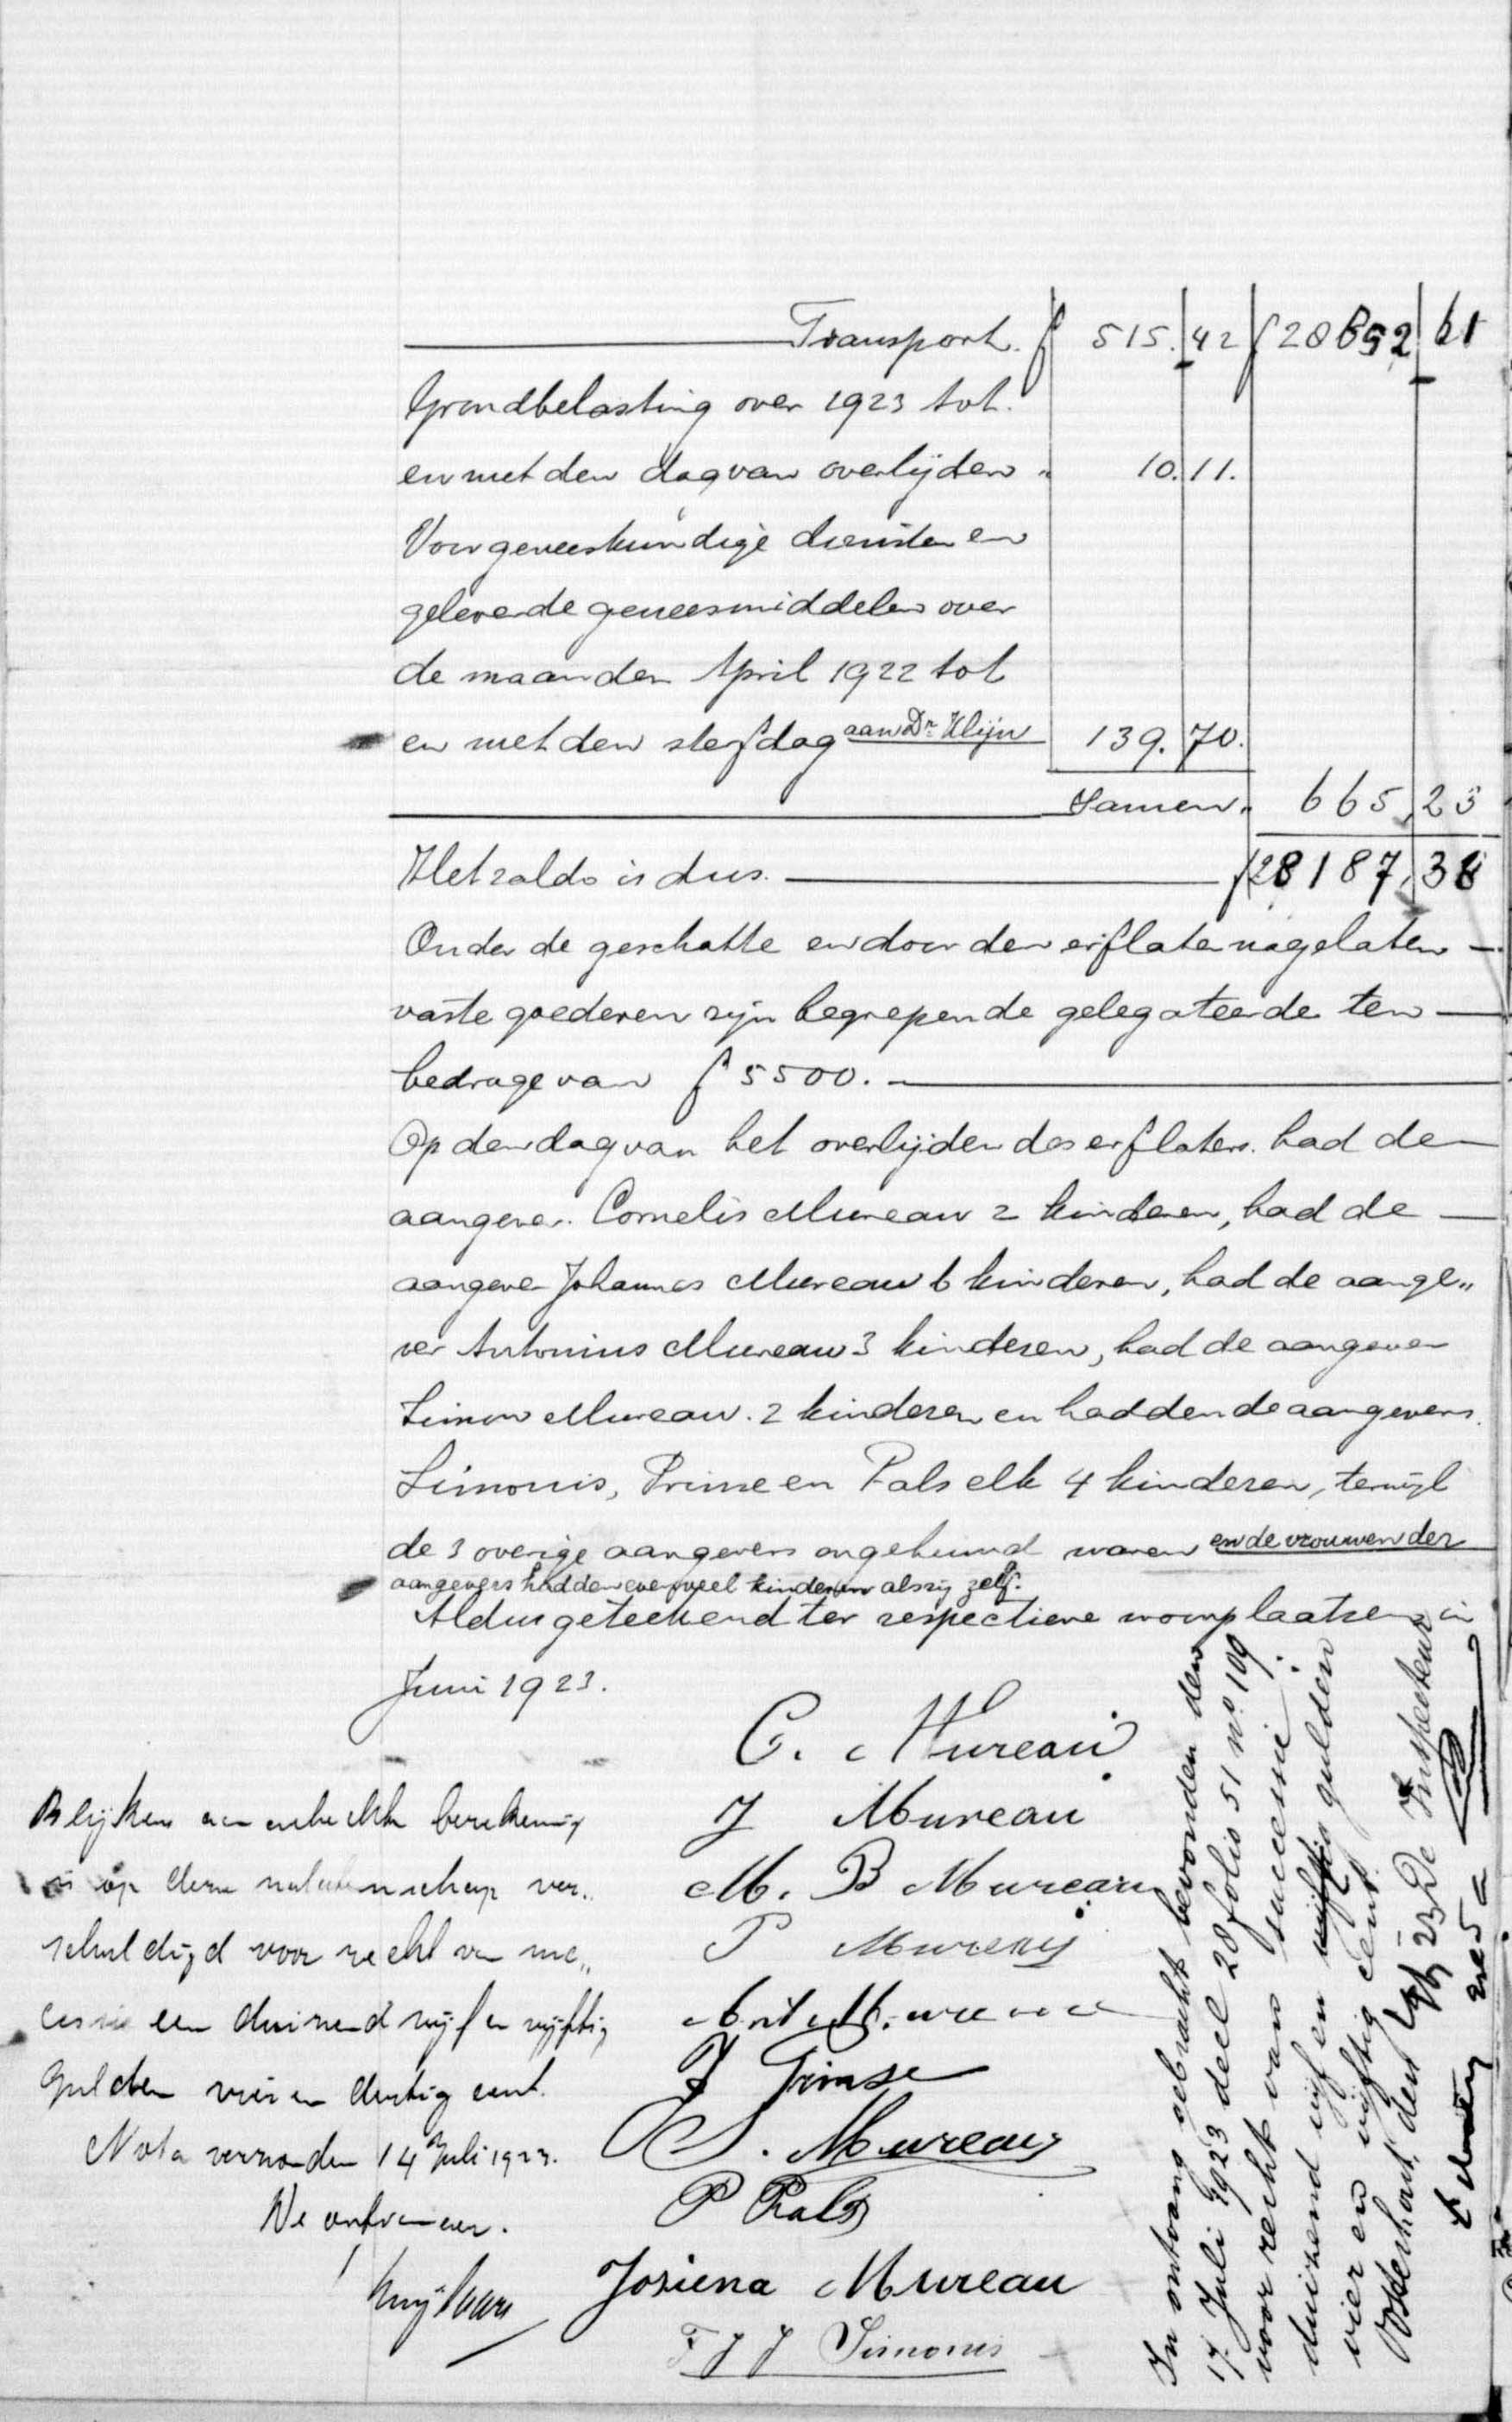 Transport. f 515.42 f 28852 61
Grondbelasting over 1923 tot.
en met den dag van overlijden „ 10.11.
Voor geneeskundige diensten en
geleverde geneesmiddelen over
de maanden April 1922 tot
en met den sterfdag aan Dr Klijn 139.70.
Samen „ 665,23
Het saldo is dus. f 28187,38
Onder de geschatte en door den erflater nagelaten
vaste goederen zijn begrepen de gelegateerde ten
bedrage van f 5500.
Op den dag van het overlijden des erflaters had de
aangever Cornelis Mureau 2 kinderen, had de
aangever Johannes Mureau 6 kinderen, had de aange„
ver Antonius Mureau 3 kinderen, had de aangever
Simon Mureau. 2 kinderen en hadden de aangevers
Simonis, Prinse en Pals elk 4 kinderen, terwijl
de 3 overige aangevers ongehuwd waren en de vrouwen der
aangevers hadden evenveel kinderen als zij zelf.
Aldus geteekend ter respectieve woonplaatsen in
Juni 1923.
C. Mureau
J Mureau
M. B Mureau
P Mureau
Ant. Mureau
J Prinse
S. Mureau
P Pals
Josiena Mureau
F J J Simonis
Blijkens aan berekening
is op deze nalatenschap ver„
schuldigd voor recht van suc„
cessie een duizend vijf en vijftig
gulden vier en dertig cent.
Nota verzonden 14 Juli 1923.
De ontvanger.
In ontvang gebracht bevonden den
17 Juli 1923 deel 28 folio 51 no. 109
voor recht van successie:
duizend vijf en vijftig gulden
vier en vijftig cent.
Oosterhout, den 23 De Inspecteur